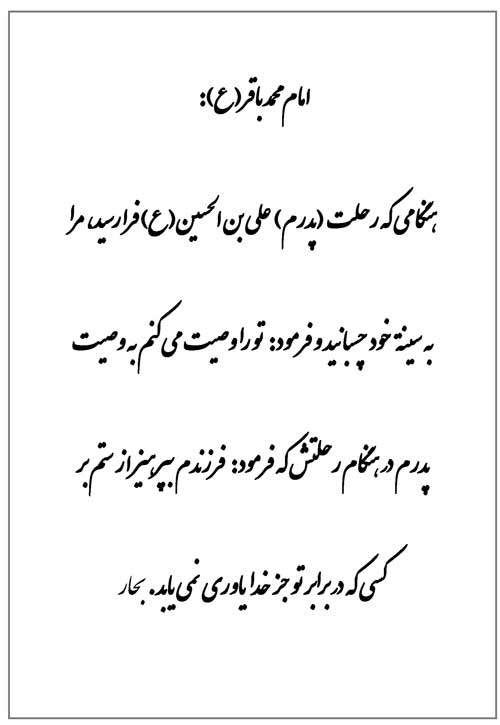 امام محمد باقر(ع):
هنگامی که رحلت (پدرم) علی بن الحسین(ع)فرارسید، مرا
به سینهٔ خود چسبانید و فرمود: تو را وصیت می کنم به وصیت
پدرم در هنگام رحلتش که فرمود: فرزندم بپرهیز از ستم بر
کسی که در برابر تو جز خدا یاوری نمی یابد. بحار